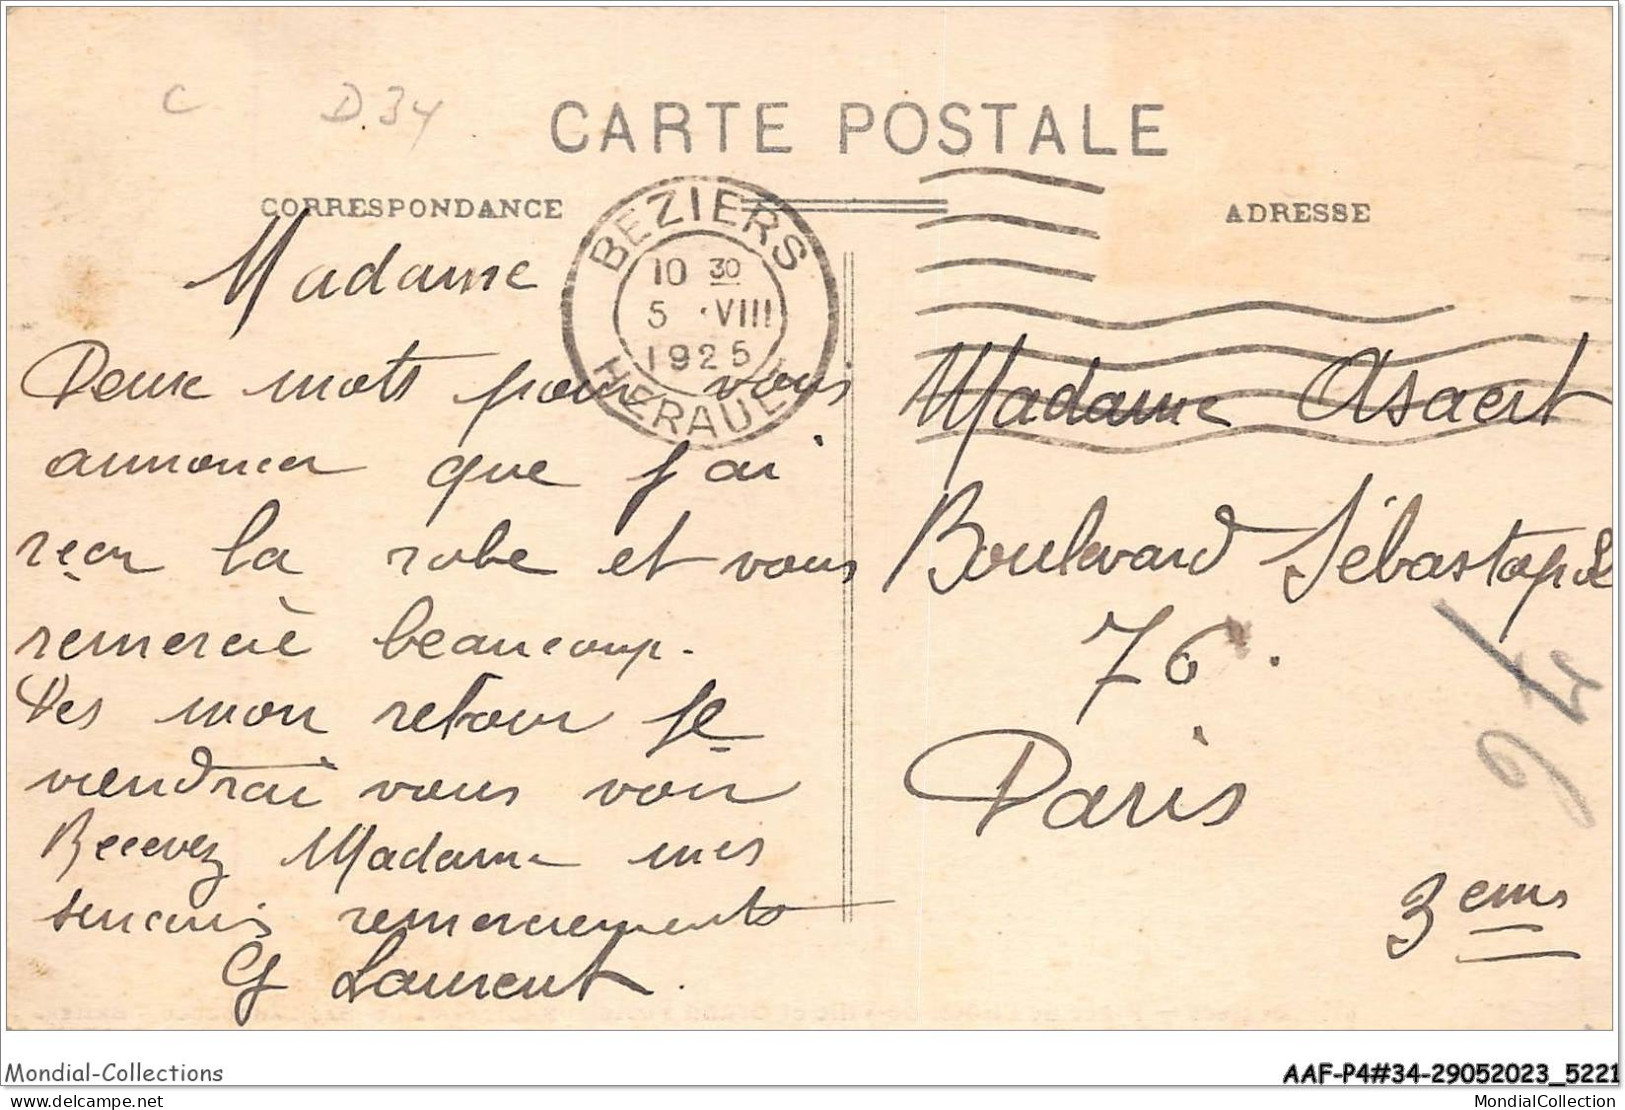 C D.34
CARTE POSTALE
CORRESPONDANCE
ADRESSE
BEZIERS
10 30
5 •VIII
1925
HERAULT
Madame
Deux mots pour vous
annoncer que j'ai
reçu la robe et vous
remercie beaucoup.
Des mon retour je
viendrai vous voir
Recevez Madame mes
sinceris remerciements
G Laurent.
Madame Asaert
Boulevard Sébastopol
76.
Paris
3 ems
Mondial-Collections
AAF-P4#34-29052023_5221
www.delcampe.net
MondialCollection